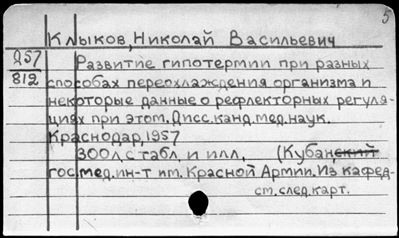 5
Клыков, Николай Васильевич
Д57
812
Развитие гипотермии при разных
способах переохлаждения организма и
некоторые данные о рефлекторных регуля-
циях при этом. Дисс. канд. мед. наук.
Краснодар, 1957
300л. с табл. и илл. (Кубанский
гос. мед. ин-т им. Красной Армии. Из кафед-
ст. след. карт.